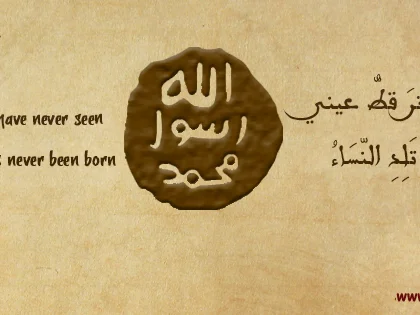 have never seen
never been born
الله
رسول
محمد
قطُّ عيني
تَلِدِ النّسَاءُ
www